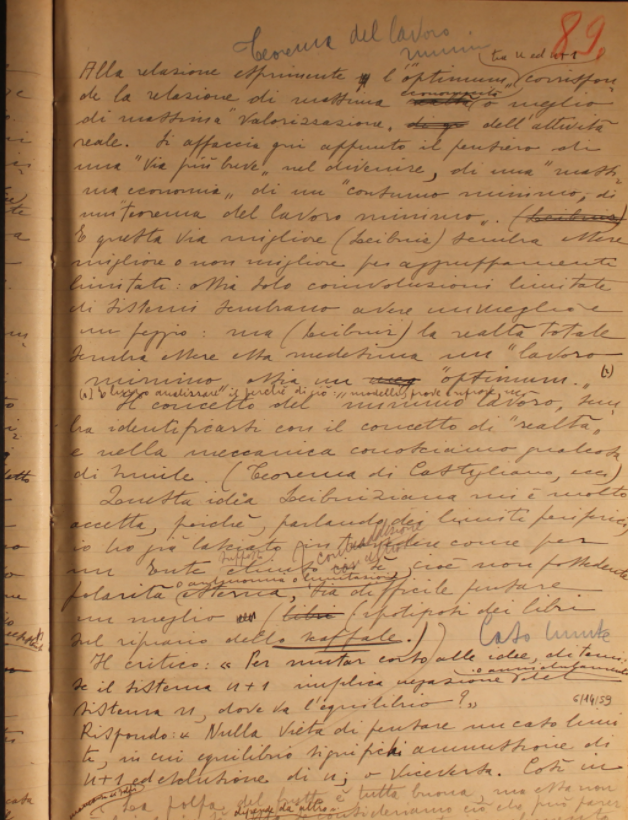 Teorema del lavoro
minimo
89.
tra n ed n+1
Alla relazione esprimente l'"optimum" corrispon
de la relazione di massima economicità o meglio
di massima "valorizzazione" dell'attività
reale. Si affaccia qui appunto il pensiero di
una "via più breve" nel divenire, di una "mass-
ma economia" di un "consumo minimo, di
un "teorema del lavoro minimo". (Leibniz)
E questa via migliore (Leibniz) sembra essere
migliore o non migliore per aggruppamenti
limitati: ossia solo coinvoluzioni limitate
di sistemi sembrano avere un meglio e
un peggio: ma (Leibniz) la realtà totale
sembra essere essa medesima un "lavoro
minimo, ossia un "optimum." (x)
(x) E bisogna analizzare il perché di ciò: "modello
Il concetto del "minimo lavoro, sem
bra identificarsi con il concetto di "realtà"
e nella meccanica conosciamo qualcosa
di simile. (Teorema di Castigliano, ecc)
Questa idea Leibniziana mi è molto
accetta, perché, parlando dei limiti periferici,
io ho già lasciato intravedere come per
un Ente chiuso in sé, cioè non possedente
contraddizione
con altro
o autonomo o
polarità esterna, sia difficile pensare
un meglio (libri (ipotiposi dei libri
sul ripiano dello scaffale.)) Caso limite
Il critico: « Per mutar corso alle idee, ditemi:
se il sistema n+1 implica negazione del
o annullamento
sistema n, dove va l'equilibrio?»
6/14/59
Rispondo: « Nulla vieta di pensare un caso limi
te, in cui equilibrio significhi ammissione di
n+1 ed esclusione di n; o viceversa. Così in
La polpa del frutto è tutta buona, ma essa non
dipende da altro
consideriamo ciò che può parer